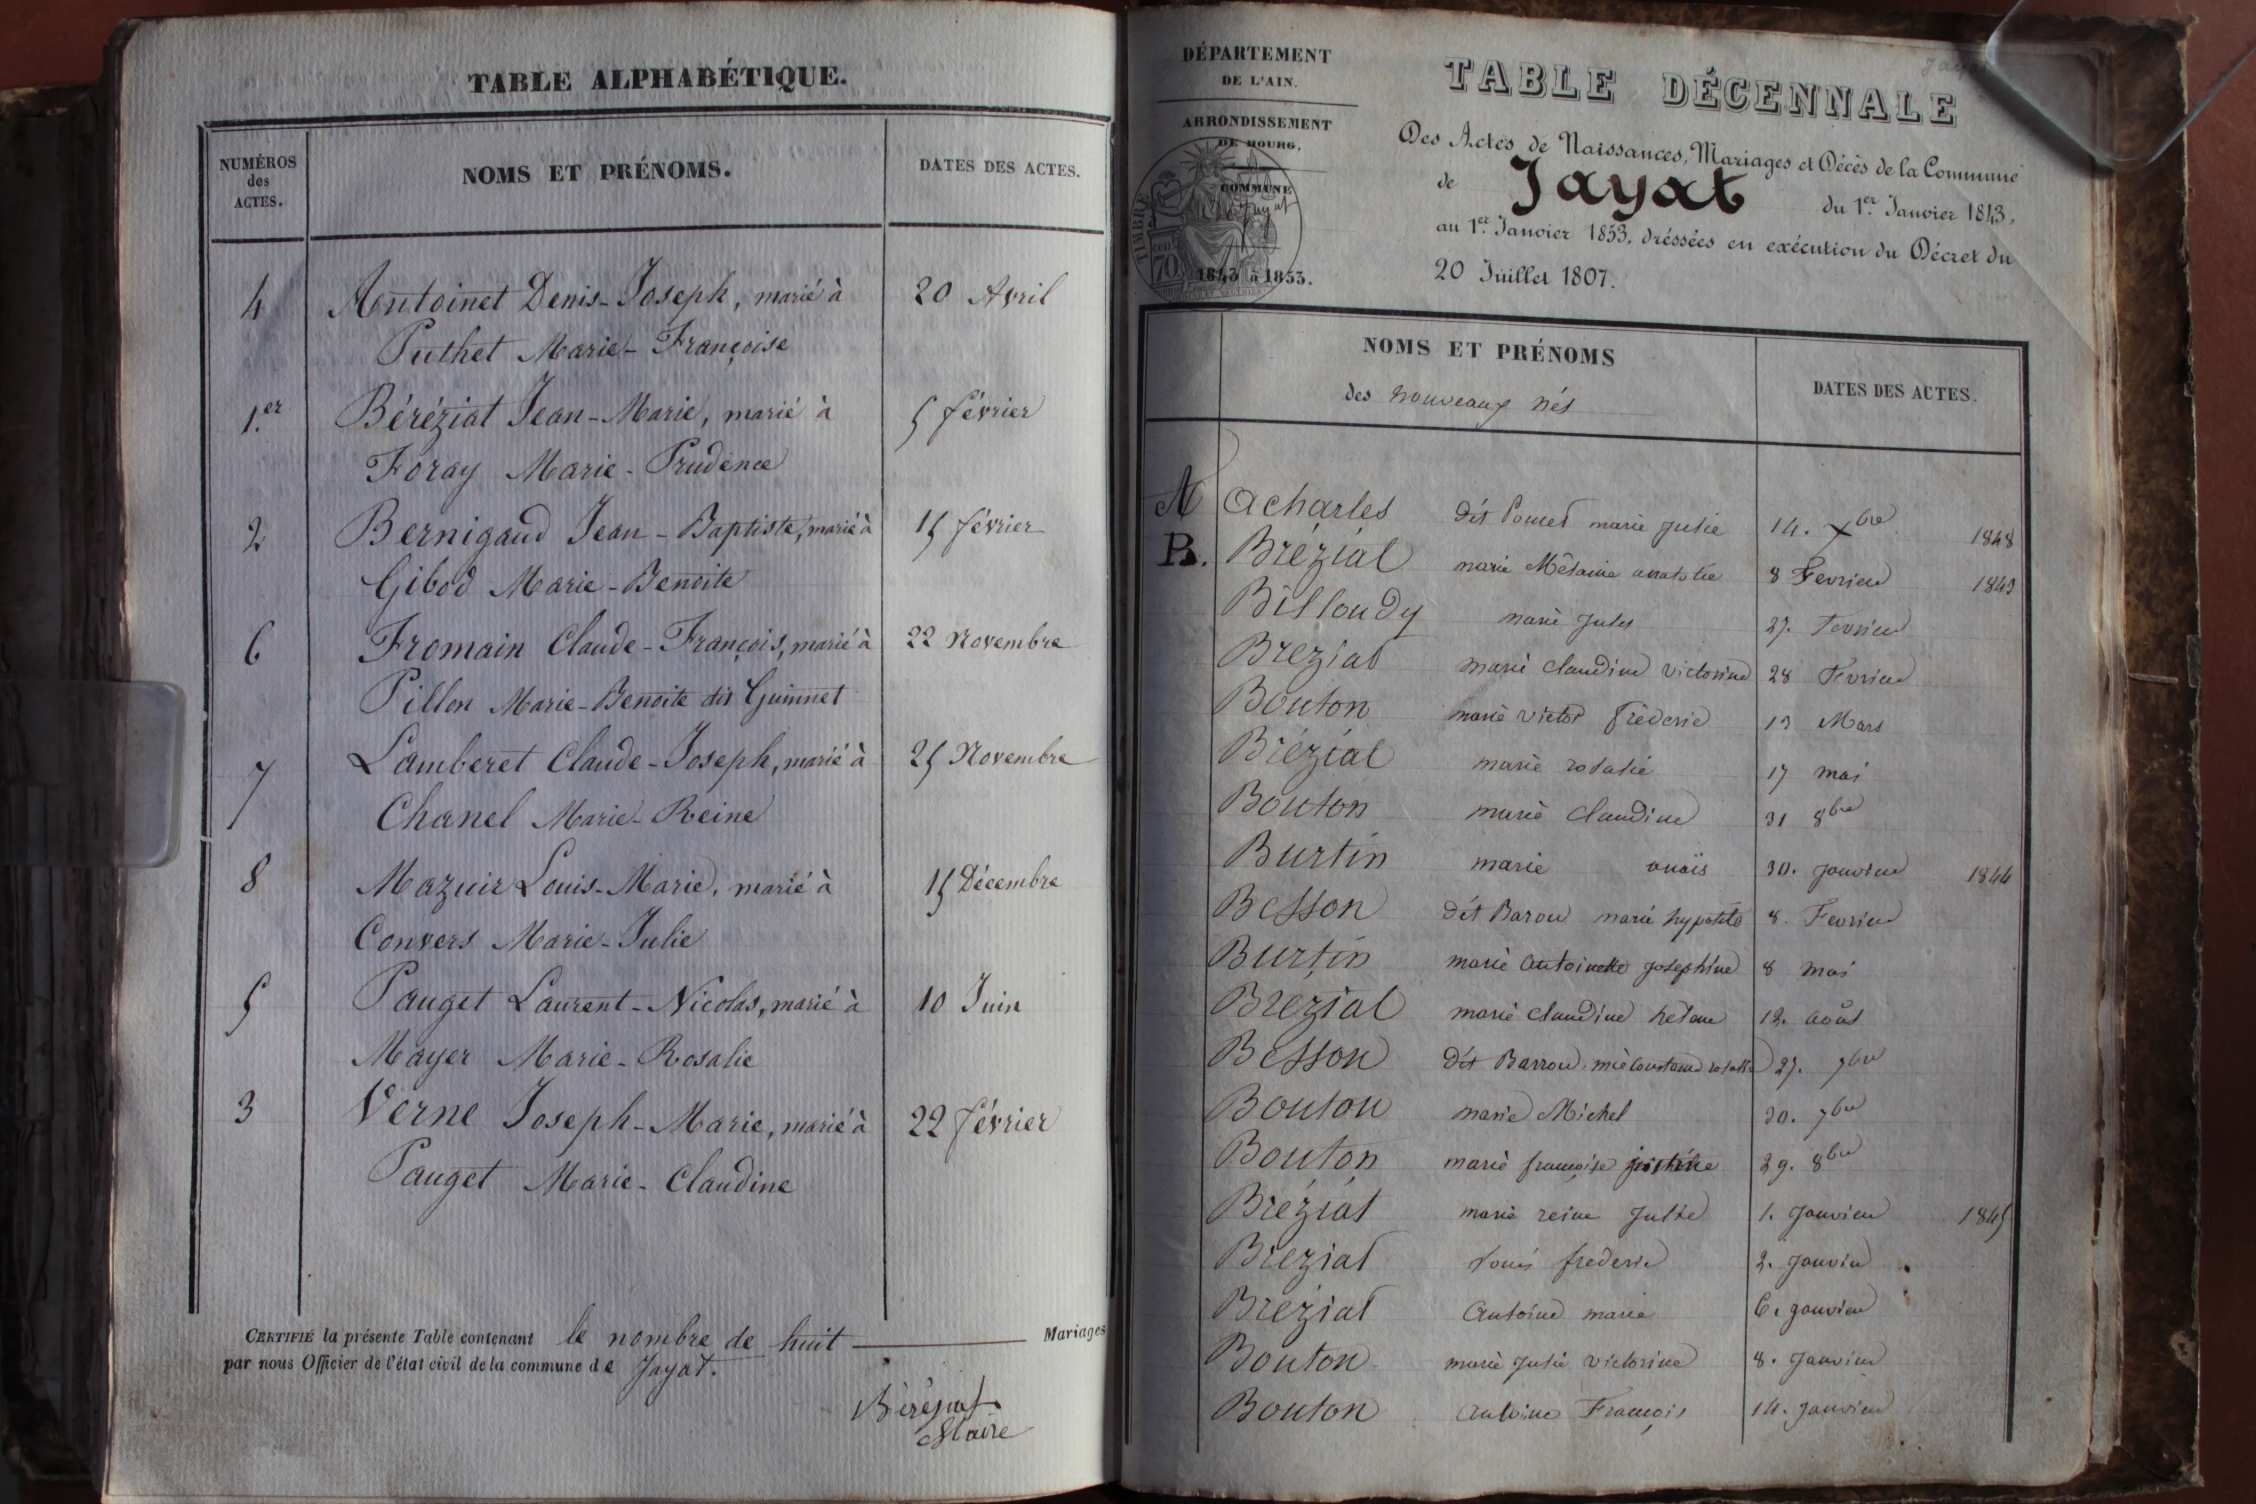 TABLE ALPHABÉTIQUE.
NUMÉROS
des
ACTES.
NOMS ET PRÉNOMS.
DATES DES ACTES.
4 Antoinet Denis-Joseph, marié à 20 Avril
Puthet Marie-Françoise
1.er Béréziat Jean-Marie, marié à 5 février
Foray Marie-Prudence
2 Bernigaud Jean-Baptiste, marié à 15 février
Gibod Marie-Benoite
6 Fromain Claude-François, marié à 22 Novembre
Pillon Marie-Benoite dit Guimnet
7 Lamberet Claude-Joseph, marié à 25 Novembre
Chanel Marie-Reine
8 Mazuir Louis-Marie, marié à 15 Décembre
Convers Marie-Julie
5 Pauget Laurent-Nicolas, marié à 10 Juin
Mayer Marie-Rosalie
3 Verne Joseph-Marie, marié à 22 février
Pauget Marie-Claudine
CERTIFIÉ la présente Table contenant le nombre de huit Mariages
par nous Officier de l'état civil de la commune de Jayat.
Béréziat
Maire
DÉPARTEMENT
DE L'AIN.
ARRONDISSEMENT
DE BOURG.
COMMUNE
de Jayat
TIMBRE
70
1843 à 1853.
TABLE DÉCENNALE
Des Actes de Naissances, Mariages et Décès de la Commune
de Jayat du 1.er Janvier 1843,
au 1.er Janvier 1853, dréssées en exécution du Décret du
20 Juillet 1807.
NOMS ET PRÉNOMS
des nouveaux nés
DATES DES ACTES.
A acharles dit Poncet marie Julie 14. Xbre 1848
B. Bréziat marie anatolie 8 Fevrier 1843
Billoudy marie Jules 27. Fevrier
Breziat marie claudine victorine 28 Fevrier
Bouton marie victor fréderic 13 Mars
Bréziat marie rosalie 17 mai
Bouton marie Claudine 31 8bre
Burtin marie anaïs 30. Janvier 1844
Besson dit Baron marie hypolite 8. Fevrier
Burtin marie antoinette Josephine 8 mai
Bréziat marie claudine 12. août
Besson dit Barron mie Constance 27. 7bre
Bouton marie Michel 30. 7bre
Bouton marie françoise 29. 8bre
Bréziat marie reine Julie 1. Janvier 1845
Breziat Louis frederic 2. Janvier
Breziat Antoine marie 6. Janvier
Bouton marie Julie victorine 8. Janvier
Bouton Antoine François 14. Janvier